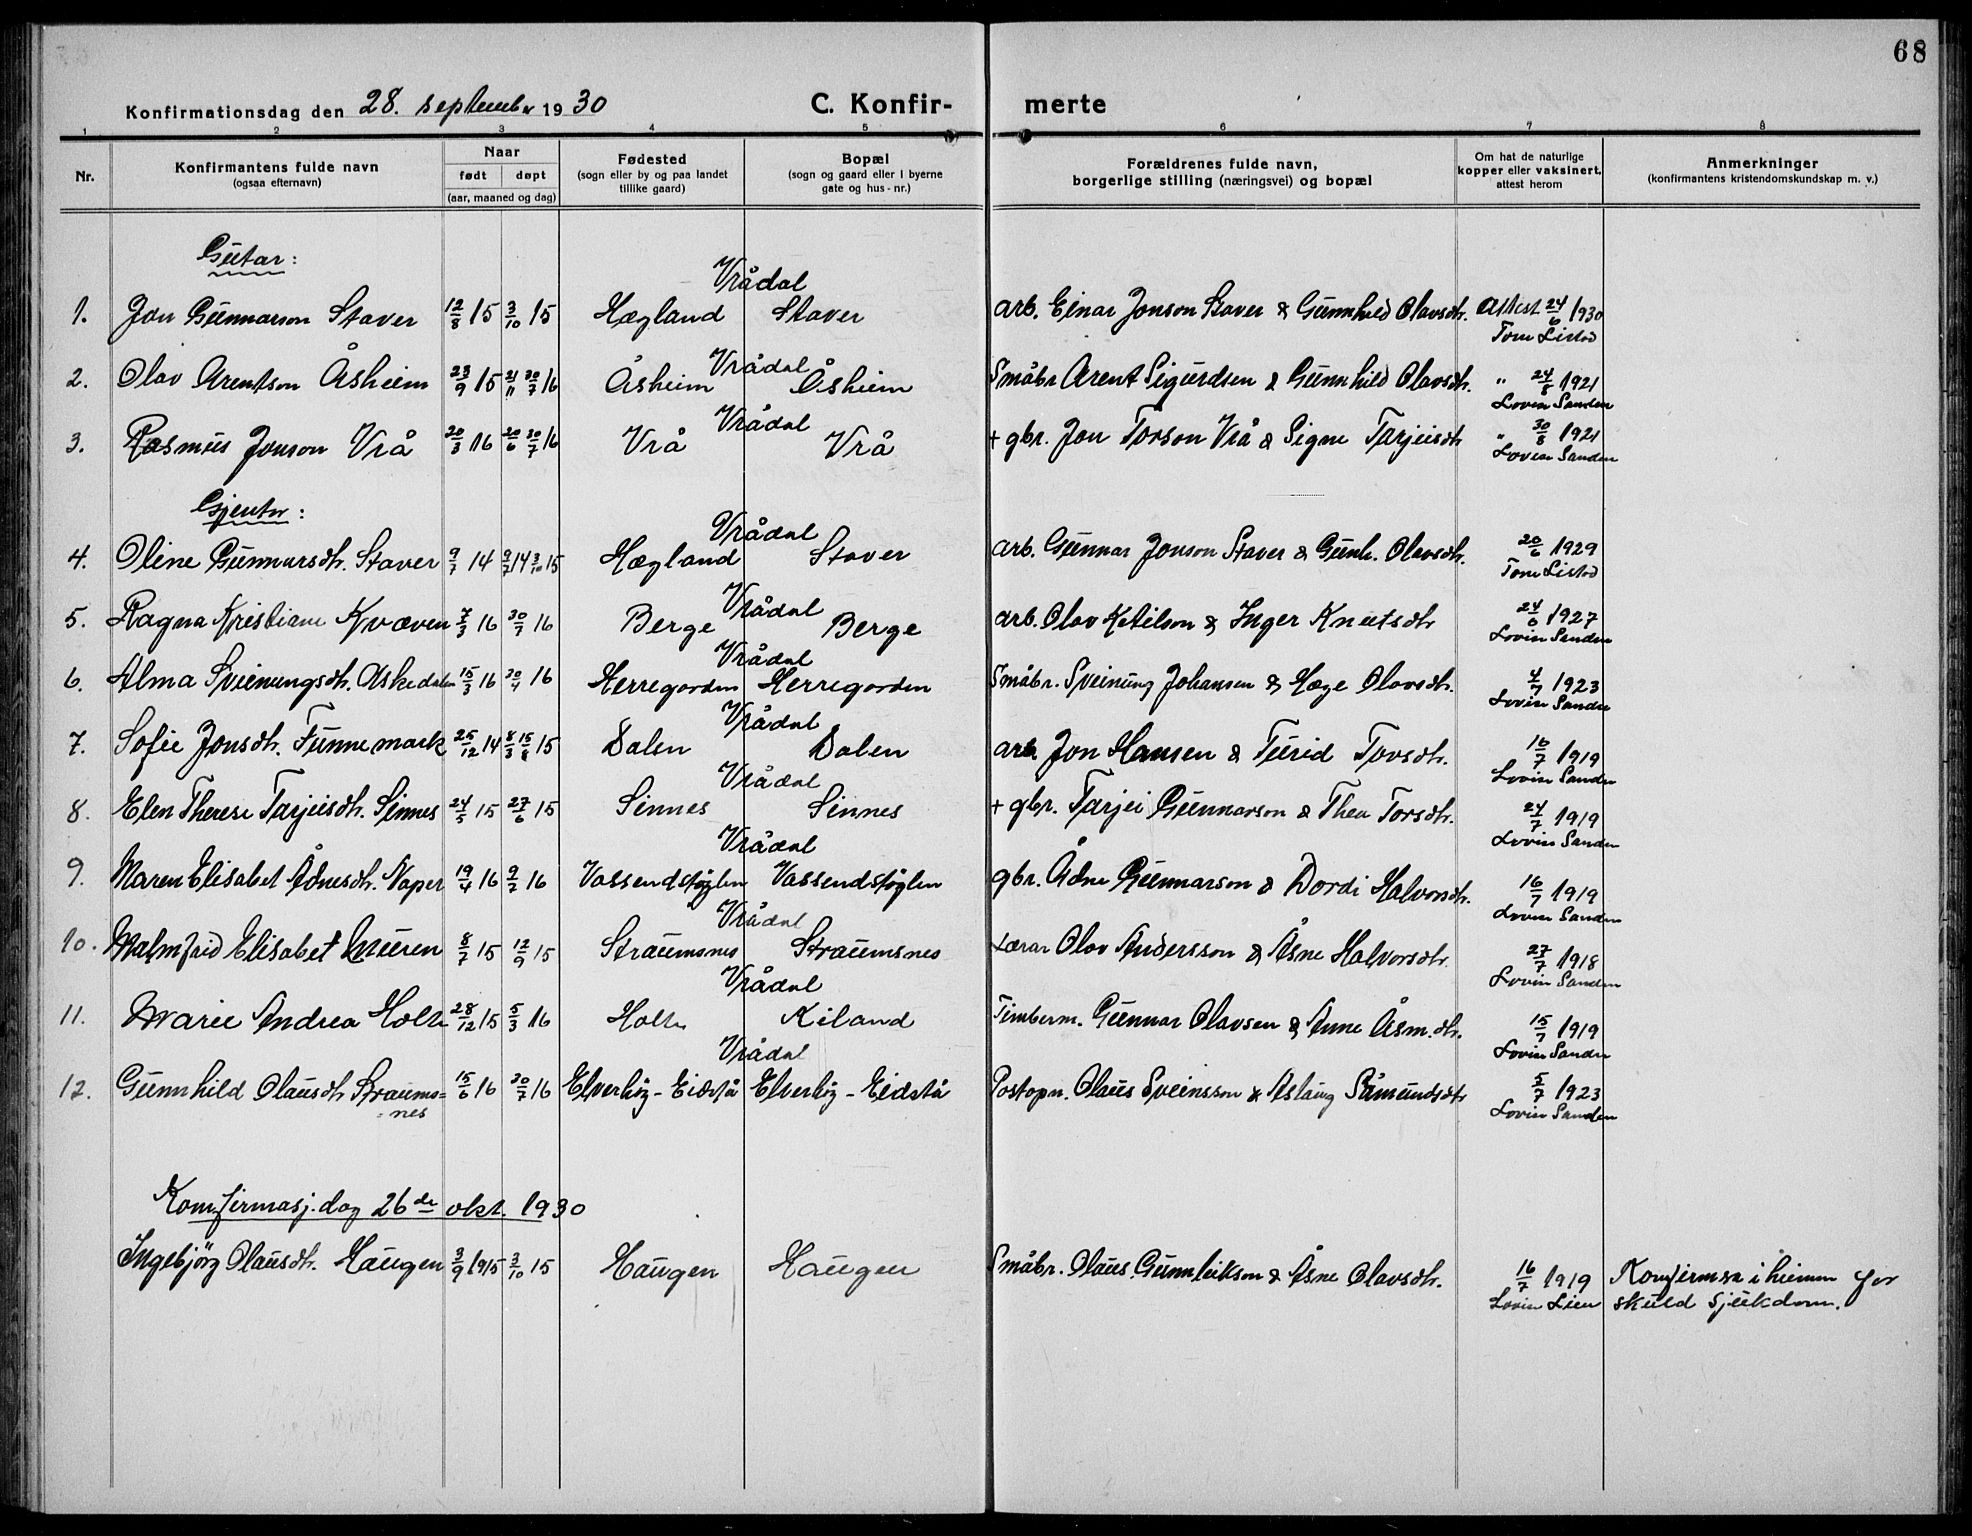 68
Konfirmationsdag den 28. septembr 1930
C. Konfir- merte
1 2 3 4 5 6 7 8
Nr.
Konfirmantens fulde navn
(ogsaa efternavn)
Naar
født døpt
(aar, maaned og dag)
Fødested
(sogn eller by og paa landet
tillike gaard)
Bopæl
(sogn og gaard eller i byerne
gate og hus-nr.)
Forældrenes fulde navn,
borgerlige stilling (næringsvei) og bopæl
Om hat de naturlige
kopper eller vaksinert,
attest herom
Anmerkninger
(konfirmantens kristendomskundskap m. v.)
Gutar:
Vrådal
1. Jon Gunnarson Staver 12/8 15 3/10 15 Hægland Staver arb. Einar Jonson Staver & Gunnhild Olavsdtr. Attest 24/6 1930
Tom Listod
Vrådal
2. Olav Arentson Åsheim 23/9 15 21/11 30/7 16 Åsheim Åsheim Småbr. Arent Sigurdsen & Gunnhild Olavsdtr. " 24/8 1921
Lovise Sanden
Vrådal
3. Rasmus Jonson Vrå 20/3 16 20/6 30/7 16 Vrå Vrå + gbr. Jon Torson Vrå & Signe Tarjeisdtr " 30/8 1921
Lovise Sanden
Gjentor:
Vrådal
4. Oline Gunnarsdtr. Staver 9/7 14 9/7 14 3/10 15 Hægland Staver arb. Gunnar Jonson Staver & Gunh. Olavsdtr. 20/6 1929
Tom Listod
Vrådal
5. Ragna Kristiane Kvæven 7/3 16 30/7 16 Berge Berge arb. Olav Ketilson & Inger Knutsdtr 24/6 1927
Lovise Sanden
Vrådal
6. Alma Sveinungsdtr. Askedalen 15/3 16 30/4 16 Herregorden Herregorden Småbr. Sveinung Johansen & Hæge Olavsdtr. 4/7 1923
Lovise Sanden
Vrådal
7. Sofie Jonsdtr. Funnemark 25/12 14 8/3 15/8 15 Dalen Dalen arb. Jon Hansen & Turid Tovsdtr. 16/7 1919
Lovise Sanden
Vrådal
8. Elen Therese Tarjeisdtr. Sinnes 24/5 15 27/6 15 Sinnes Sinnes + gbr. Tarjei Gunnarson & Thea Torsdtr. 24/7 1919
Lovise Sanden
Vrådal
9. Maren Elisabet Ådnesdtr. Naper 19/4 16 9/7 16 Vassendstøylen Vassendstøylen gbr. Ådne Gunnarson & Dordi Halvorsdtr. 16/7 1919
Lovise Sanden
Vrådal
10. Malmfrid Elisabet Muren 8/7 15 12/9 15 Straumsnes Straumsnes Lærar Olav Andersson & Åsne Halvorsdtr. 27/7 1918
Lovise Sanden
Vrådal
11. Marie Andrea Holte 28/12 15 5/3 16 Holte Kiland Timberm. Gunnar Olavsen & Anne Åsm.dtr. 15/7 1919
Lovise Sanden
Vrådal
12. Gunnhild Olausdtr Straums= 15/6 16 30/7 16 Elverhøy - Eidstå Elverhøy - Eidstå Postopn. Olaus Sveinsson & Aslaug Såmundsdtr 5/7 1923
=nes Lovise Sanden
Komfirmasj.dag 26de okt. 1930
Ingebjörg Olausdtr. Haugen 3/9 1915 3/10 15 Haugen Haugen Småbr. Olaus Gunnleikson & Åsne Olavsdtr. 16/7 1919 Komfirmera i heimen for
Lovise Lien skuld sjukdom.